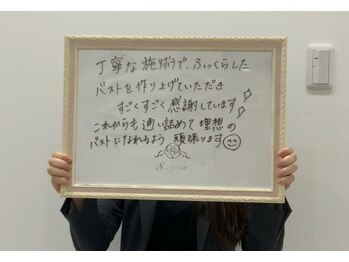 丁寧な施術で、ふっくらした
バストを作り上げていただき
すごくすごく感謝しています
これからも通い詰めて理想の
バストになれるよう頑張ります